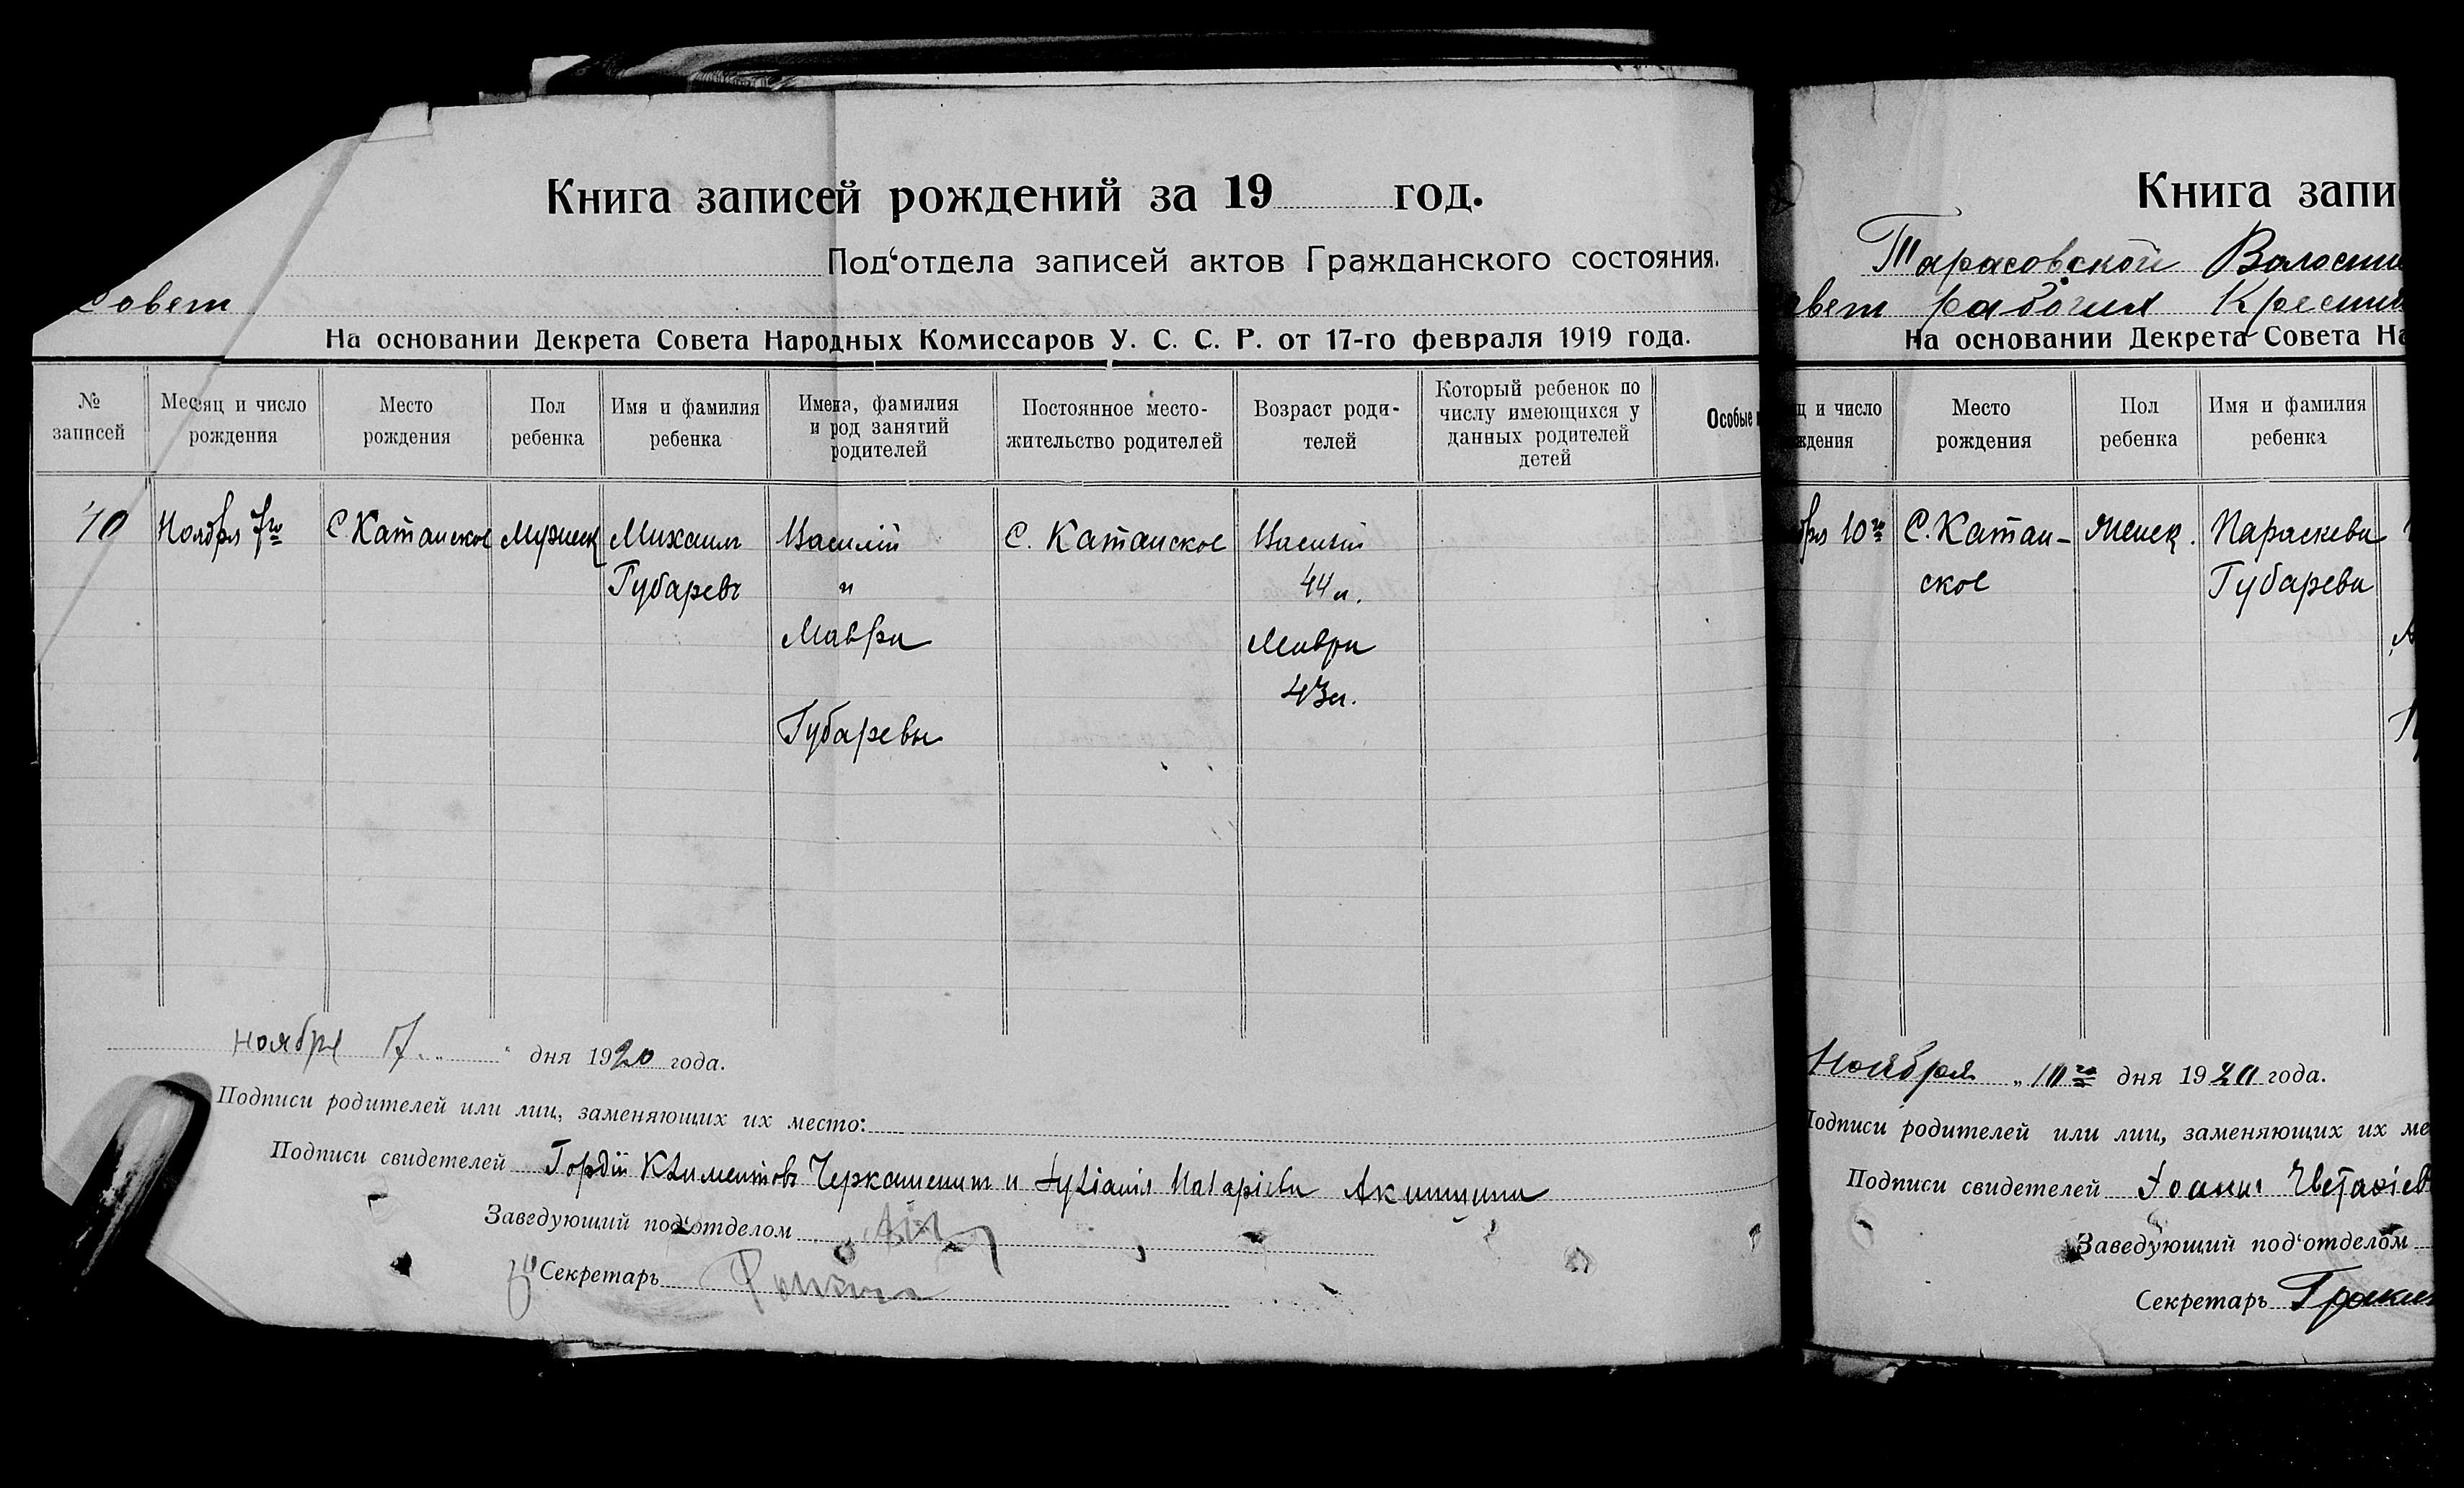 Книга записей рождений за 19 год.
Под‘отдела записей актов Гражданского состояния.
Совет
На основании Декрета Совета Народных Комиссаров У. С. С. Р. от 17-го февраля 1919 года.
№ записей
Месяц и число рождения
Место рождения
Пол ребенка
Имя и фамилия ребенка
Имена, фамилия и род занятий родителей
Постоянное место-жительство родителей
Возраст роди-телей
Который ребенок по числу имеющихся у данных родителей детей
Особые
40
Ноября 7го
С. Катанское
Мужеск
Михаил
Губаревъ
Василій
"
Мавра
Губаревы
С. Катанское
Василій
44 л.
Мавра
43 л.
ноября 17 дня 1920 года.
Подписи родителей или лиц, заменяющих их место:
Подписи свидетелей Гордій Климентовъ и Акишина
Заведующий под‘отделом
Секретарь
Книга запи
Тарасовской Волости
вет рабочих Крестья
На основании Декрета Совета На
ц и число
ждения
Место рождения
Пол ребенка
Имя и фамилия ребенка
бря 10го
С. Катан-
ское
Женск.
Параскева
Губарева
Ноября 10го дня 1920 года.
Подписи родителей или лиц, заменяющих их ме
Подписи свидетелей Іоанн
Заведующий под‘отделом
Секретарь